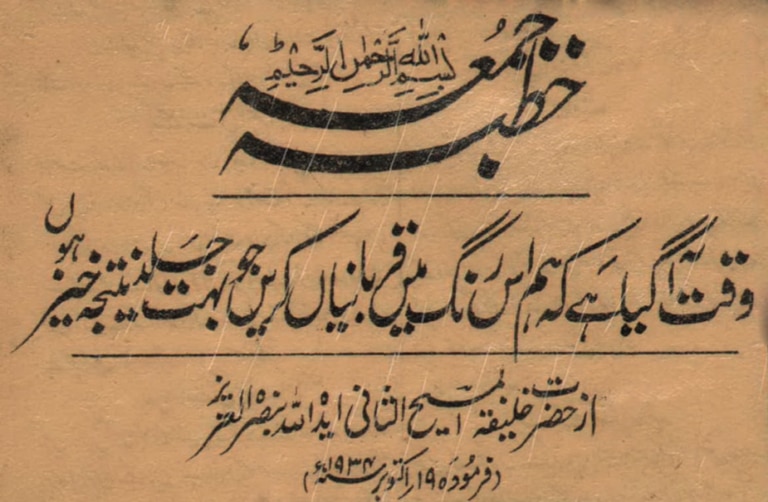 بسم اللہ الرحمن الرحیم
خطبہ جمعہ
وقت آگیا ہے کہ ہم اس رنگ میں قربانیاں کریں جو بہت جلد نتیجہ خیز ہوں
از حضرت خلیفۃ المسیح الثانی ایدہ اللہ بنصرہ العزیز
(فرمودہ ۱۹ اکتوبر ۱۹۳۴ء)